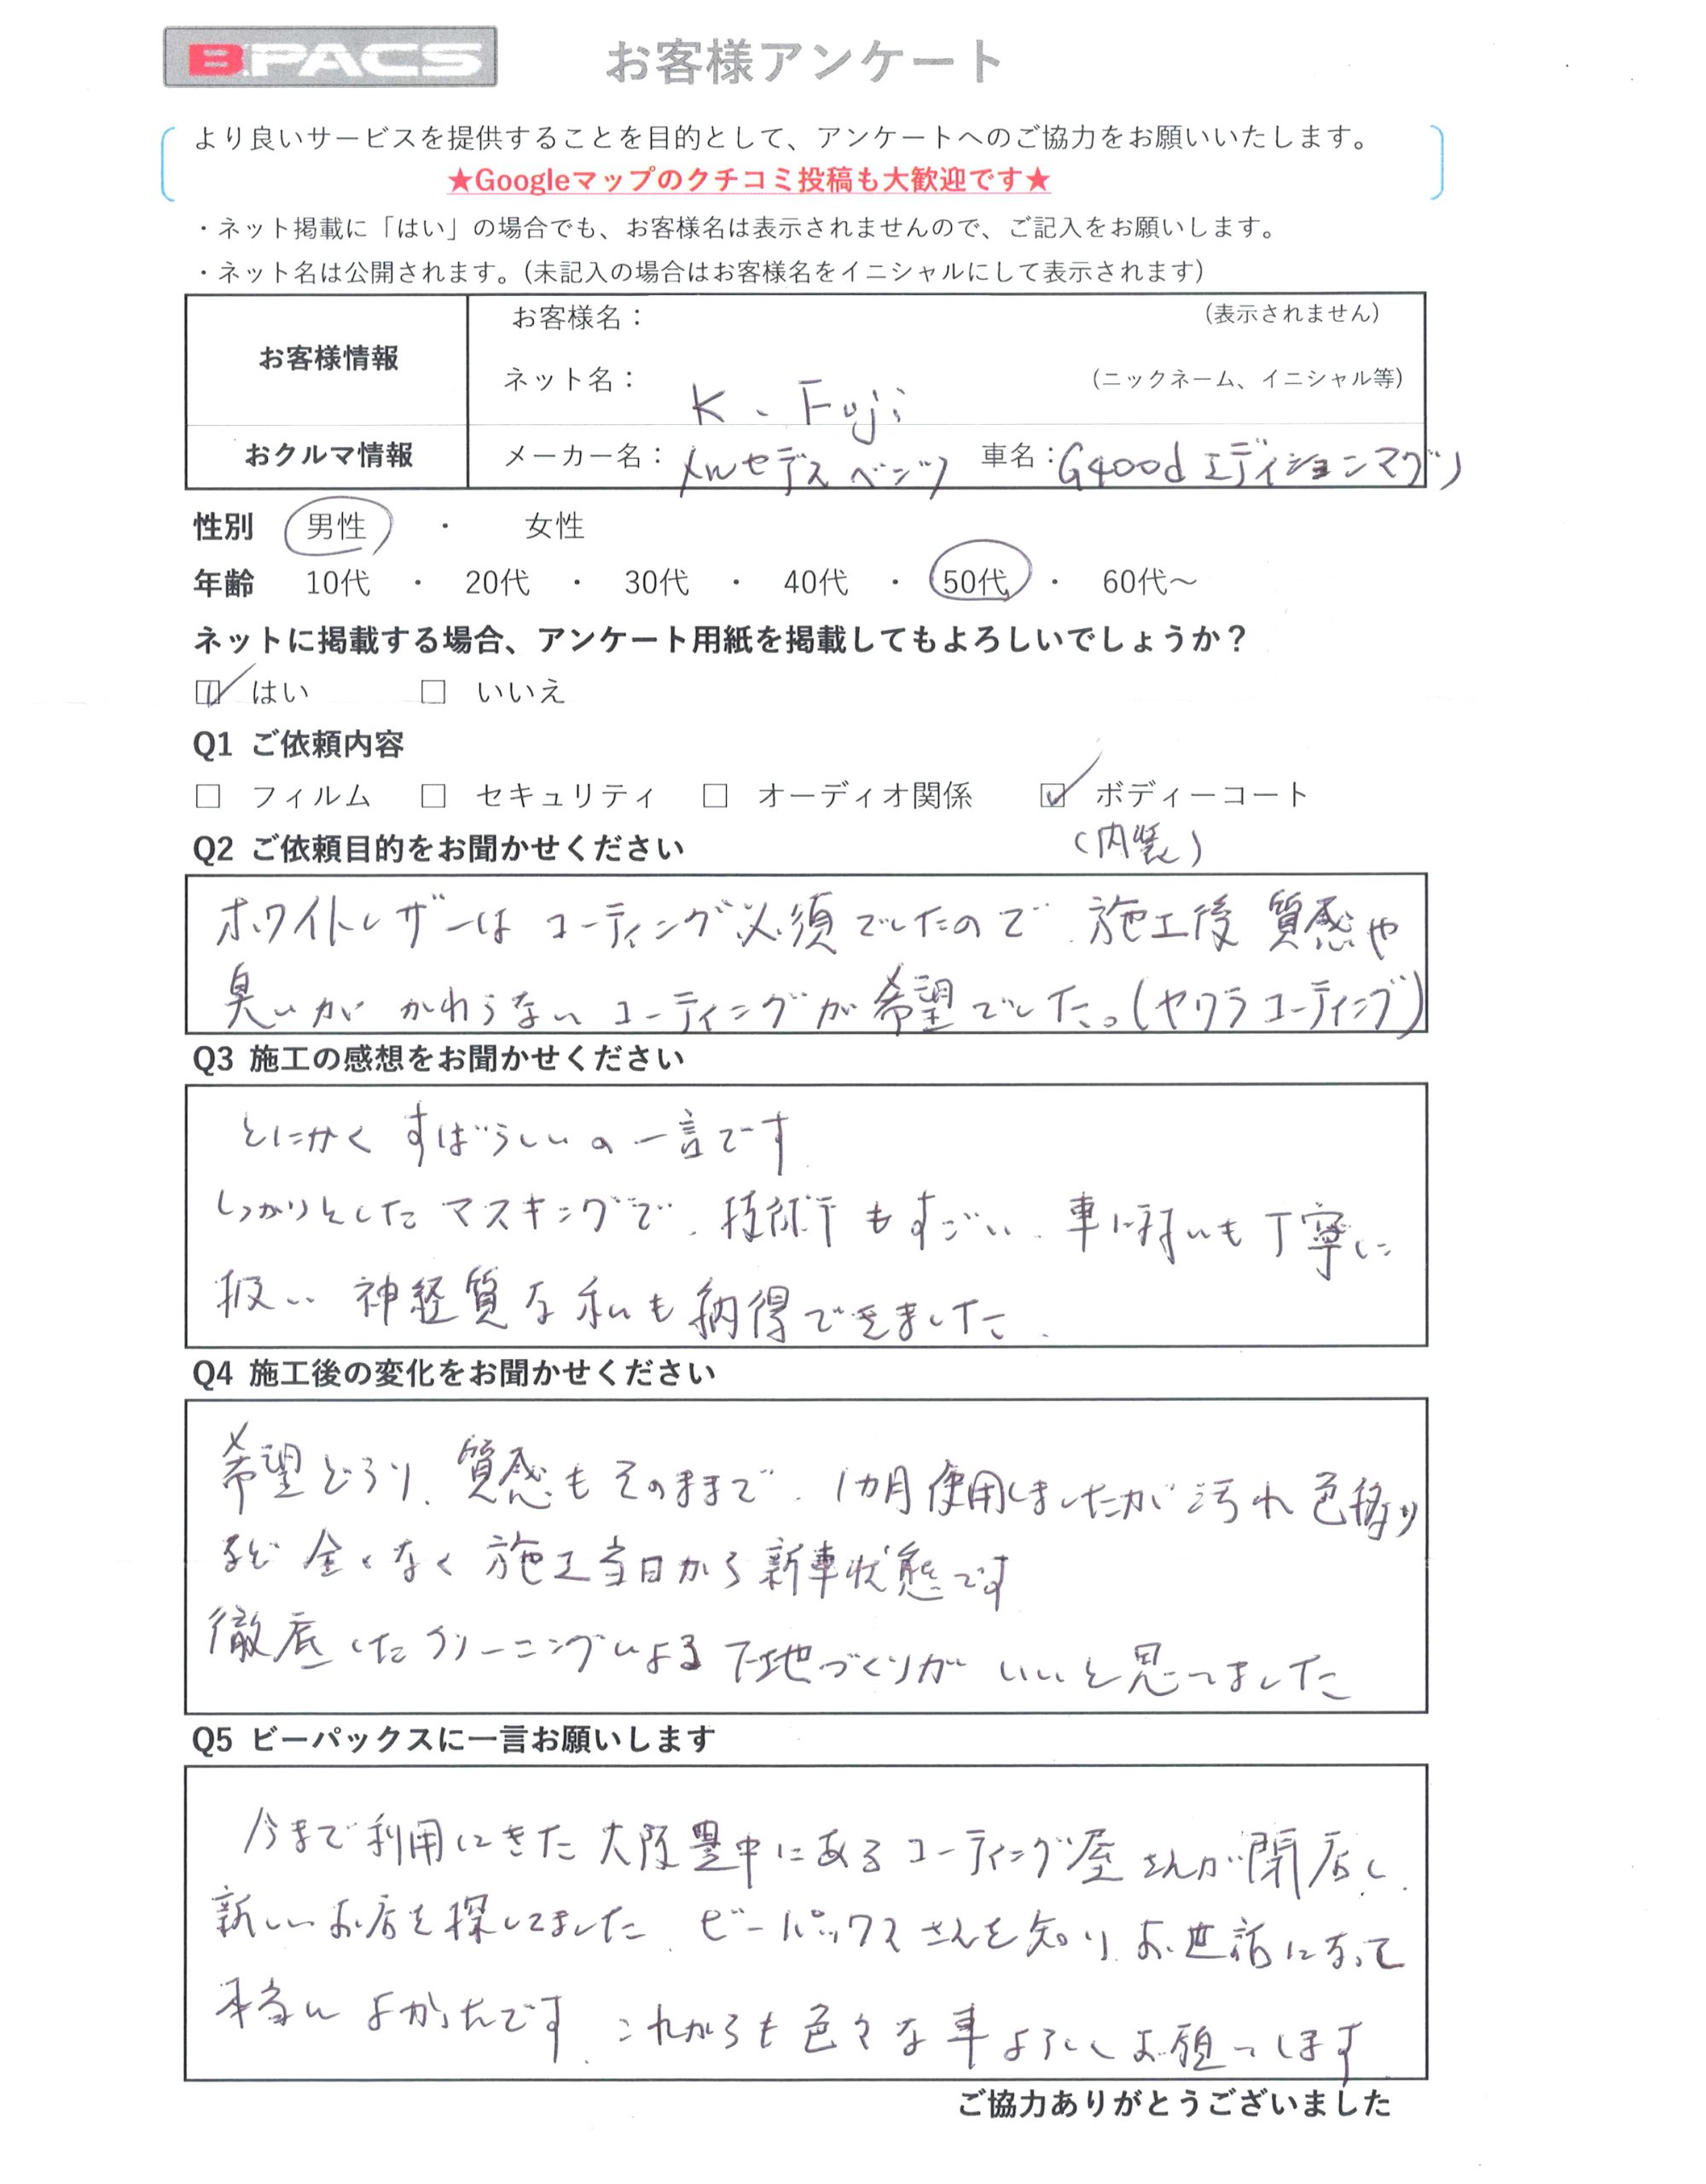 B.PACS お客様アンケート
より良いサービスを提供することを目的として、アンケートへのご協力をお願いいたします。
★Googleマップのクチコミ投稿も大歓迎です★
・ネット掲載に「はい」の場合でも、お客様名は表示されませんので、ご記入をお願いします。
・ネット名は公開されます。(未記入の場合はお客様名をイニシャルにして表示されます)
お客様情報 お客様名： (表示されません)
ネット名： K. Fuji (ニックネーム、イニシャル等)
おクルマ情報 メーカー名： メルセデスベンツ 車名：G400d エディションマグノ
性別 男性 ・ 女性
年齢 10代 ・ 20代 ・ 30代 ・ 40代 ・ 50代 ・ 60代～
ネットに掲載する場合、アンケート用紙を掲載してもよろしいでしょうか？
☑ はい □ いいえ
Q1 ご依頼内容
□ フィルム □ セキュリティ □ オーディオ関係 ☑ ボディーコート
(内装)
Q2 ご依頼目的をお聞かせください
ホワイトレザーは コーティング必須でしたので、施工後 質感や
臭いが かわらない コーティングが希望でした。(ヤワラコーティング)
Q3 施工の感想をお聞かせください
とにかく すばらしいの一言です
しっかりとした マスキングで、技術もすごい、車 も丁寧に
扱い 神経質な私も納得できました.
Q4 施工後の変化をお聞かせください
希望どうり、質感もそのままで、1カ月使用しましたが汚れ 色移り
など 全くなく 施工当日から新車状態です
徹底したクリーニングによる 下地づくりが いいと思ってました
Q5 ビーパックスに一言お願いします
今まで利用してきた 大阪豊中にある コーティング屋さんが閉店し、
新しいお店を探してました、ビーパックスさんを知り、お世話になって
本当に よかったです、これからも色々な車よろしくお願いします
ご協力ありがとうございました